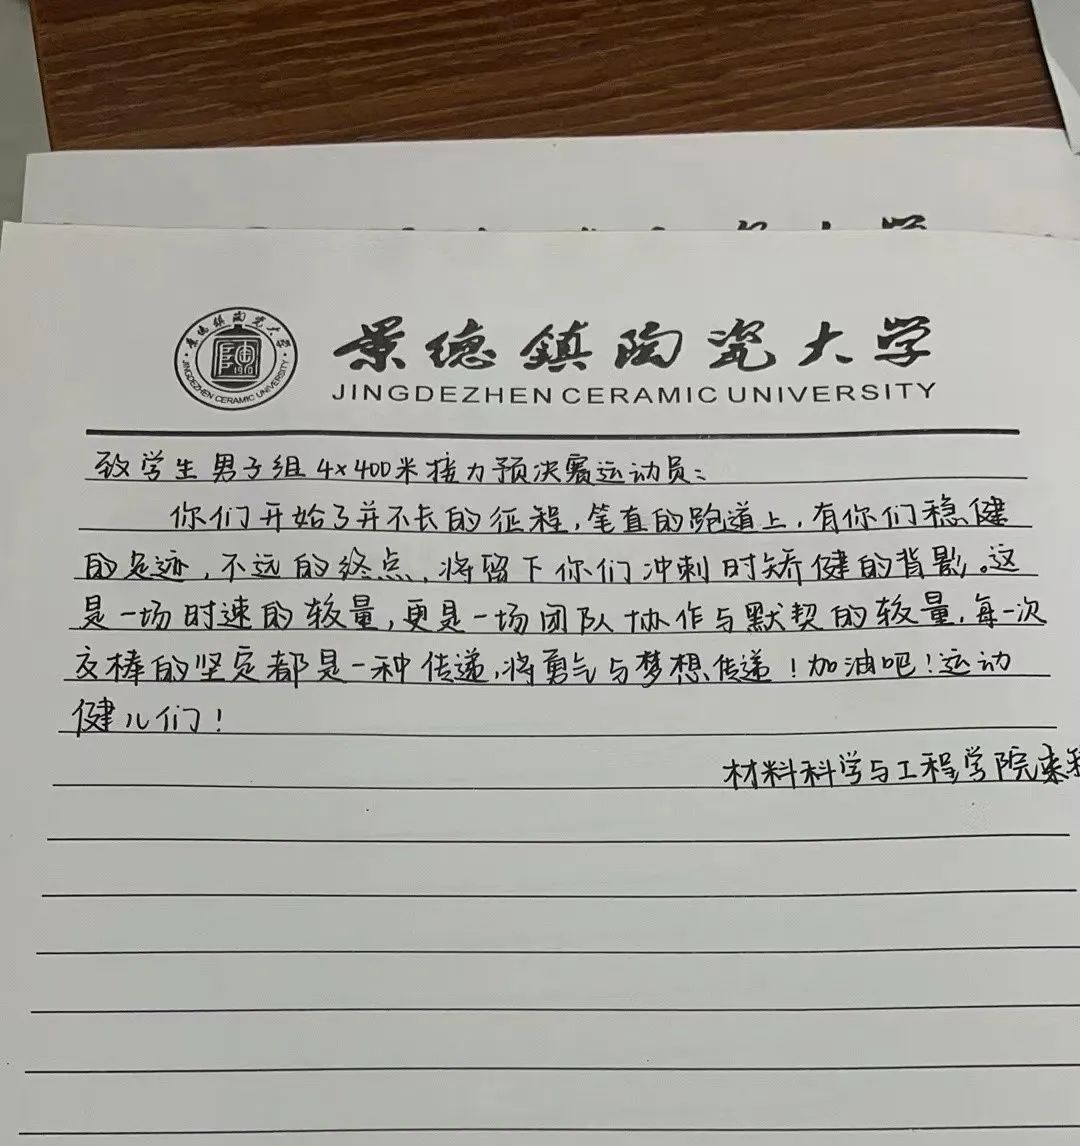 景德镇陶瓷大学
JINGDEZHEN CERAMIC UNIVERSITY
景德镇陶瓷大学
JINGDEZHEN CERAMIC UNIVERSITY
致学生男子组4×400米接力预决赛运动员:
你们开始了并不长的征程,笔直的跑道上,有你们稳健
的足迹,不远的终点,将留下你们冲刺时矫健的背影。这
是一场时速的较量,更是一场团队协作与默契的较量,每一次
交棒的坚定都是一种传递,将勇气与梦想传递!加油吧!运动
健儿们!
材料科学与工程学院来